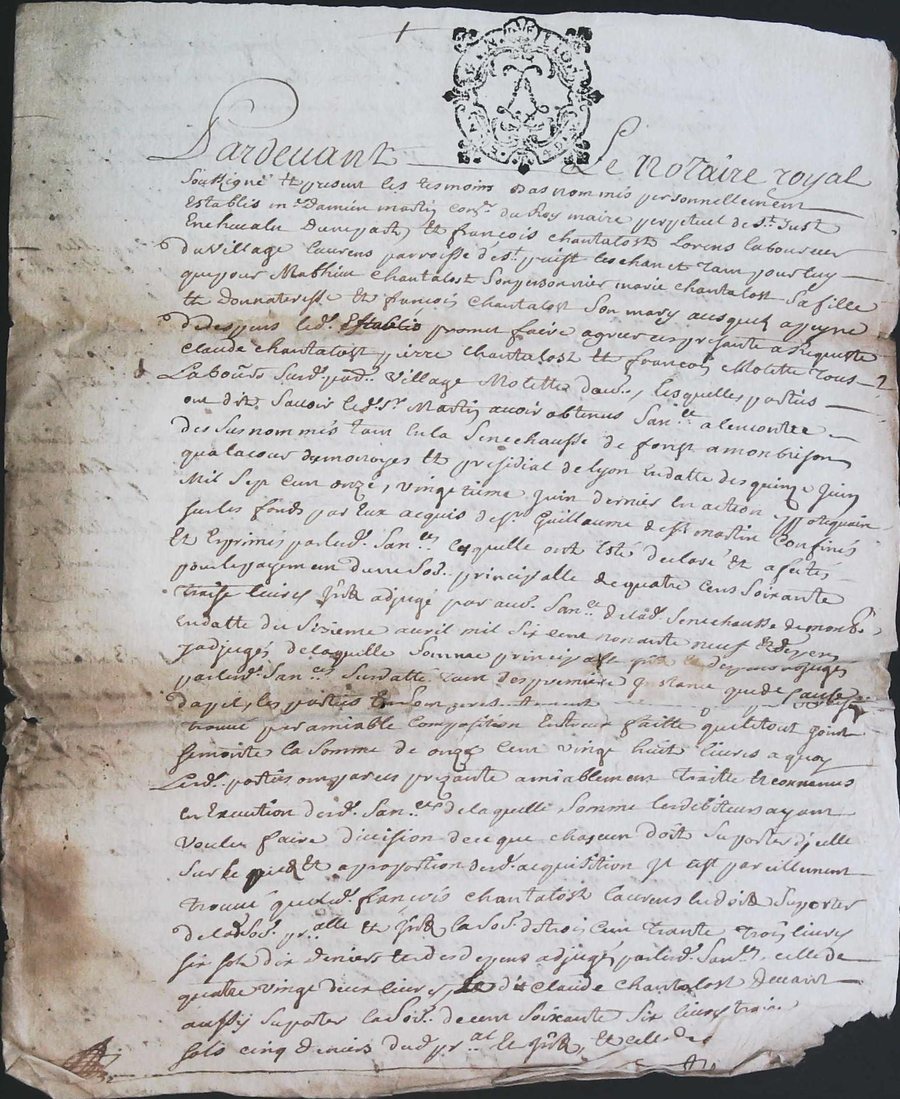 GEN. DE LION
Pardevant Le Notaire royal
Soubsigné et presant les tesmoins bas nommés personnellement
Establis me Damien martin conr du Roy maire perpetuel de st Just
En chevalu d'une part, et françois chantalost Lorens laboureur
du Village laurens parroisse de st priest tant pour luy
que pour Mathieu chantalost marie chantalost sa fille
et donnateresse et françois chantalost Son mary ausquels
de despens led. Establis promet faire agreer ces presante a
Claude chantalost pierre chantalost et françois Molette tous
Labours Village Molette d'autre, lesquelles parties
ont dit Savoir led. Sr Martin avoir obtenus Sances a lencontre
des susnommés tant en la Senechausse de forest a monbrison
qua la cour des monoyes et presidial de lyon en datte des quinze Juin
Mil Sept cent onze, vingt Juin dernier en action ypotequaire
sur les fonds par Eux acquis de sr Guillaume de st martin confinés
Et Exprimés par led. Sances lesquelle ont Esté declaré et afectés
pour le payement d'une so. principalle de quatre cens Soixante
treise livres adjugé par aut. Sance de lad. Senechausse de monb.
En datte du Sixieme avril mil six cent nonante neuf et despens
y adjugés de laquelle Somme principalle despens adjugés
par led. Sances Susdatté tant des premiere instance que de cause
dapel, les parties
trouvé par amiable composition Entreux faitte que le tout
se monte la Somme de onze cent vingt huit livres a quoy
Lesd. parties ont par ces presante amiablement traitté et convenus
en Execution desd. Sances de laquelle Somme les debiteurs ayant
voulus faire division de ce que chascun doit Suporter d'icelle
sur le pied et a proportion desd. acquisition il est pareillement
trouvé que led. françois chantalost laurens doit Suporter
de lad. so. pr.alle et la so. de trois cent trante trois livres
six sols dix deniers et des despens adjugés par led. Sances, celle de
quatre vingt deux livres, Le dit Claude chantalost devant
aussy Suporter la so. de cent soixante six livres treise
sols cinq deniers dud. pr.al et, et celle de